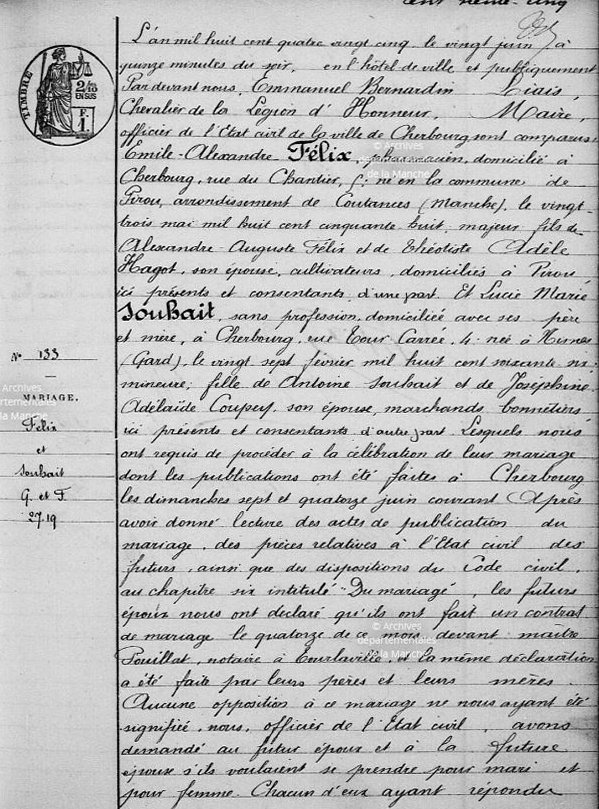 cent trente-cinq
L'an mil huit cent quatre vingt cinq le vingt juin, à
quinze minutes du soir, en l'hôtel de ville et publiquement
Par devant nous, Emmanuel Bernardin Liais
Chevalier de la Légion d'Honneur, Maire,
officier de l'Etat civil de la ville de Cherbourg sont comparus
Emile-Alexandre Félix, pharmacien, domicilié à
Cherbourg, rue du Chantier, né en la commune de
Pirou, arrondissement de Coutances (Manche), le vingt-
trois mai mil huit cent cinquante huit, majeur fils de
Alexandre-Auguste Félix et de Théotiste Adèle
Hagot, son épouse, cultivateurs, domiciliés à Pirou
ici présents et consentants, d'une part. Et Lucie Marie
Souhait, sans profession, domiciliée avec ses père
et mère, à Cherbourg, rue Tour Carrée, 4: née à Nimes
(Gard), le vingt sept février mil huit cent soixante
mineure; fille de Antoine Souhait et de Joséphine
Adélaïde Coupey, son épouse, marchands bonnetiers
ici présents et consentants d'autre part. Lesquels nous
ont requis de procéder à la célébration de leur mariage
dont les publications ont été faites à Cherbourg
les dimanches sept et quatorze juin courant Après
avoir donné lecture des actes de publication du
mariage, des pièces relatives à l'Etat civil des
futurs, ainsi que des dispositions du Code civil,
au chapitre six intitulé "Du mariage, les futurs
époux nous ont déclaré qu'ils ont fait un contrat
de mariage le quatorze de ce mois, devant maître
Pouillat, notaire à Tourlaville, et la même déclaration
a été faite par leurs pères et leurs mères.
Aucune opposition à ce mariage ne nous ayant été
signifiée, nous, officier de l'Etat civil, avons
demandé au futur époux et à la future
épouse s'ils voulaient se prendre pour mari et
pour femme. Chacun d'eux ayant répondu
TIMBRE
2/10
EN SUS
F.
1
N° 133
MARIAGE.
Félix
et
Souhait
G. et F.
27.19
© Archives
départementales
de la Manche
© Archives
départementales
de la Manche
de la Manche